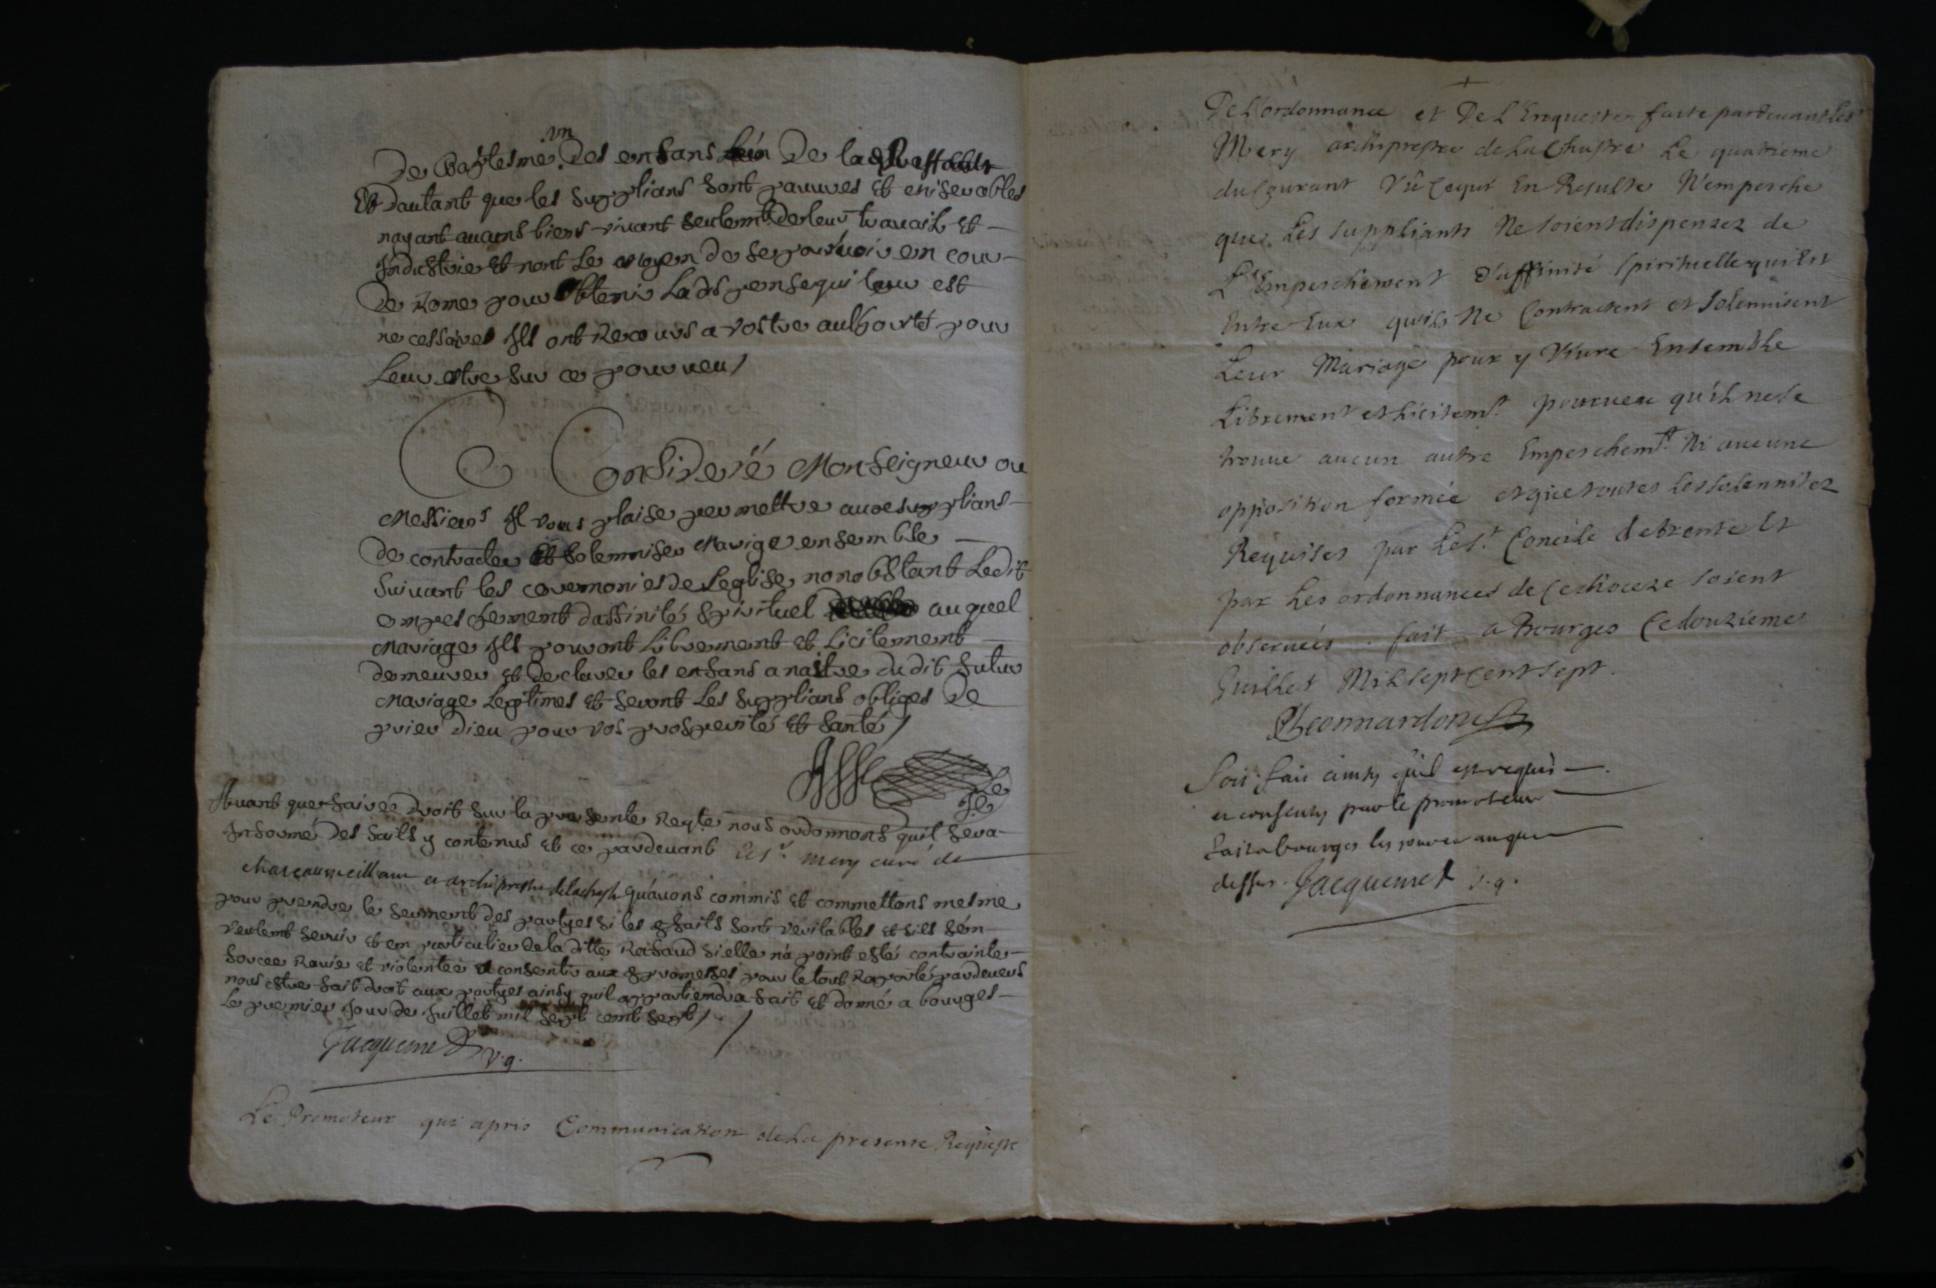 vn
De Baptesme Des enfans De la
Et Dautant que les supplians sont pauures Et miserables
nayant aucuns biens viuant seulemt de leur trauail Et
Industrie Et nont Le moyen de se pouruoir en cour
De Rome pour obtenir La dispense qui leur est
necessaires Ils ont Recours a vostre authorité pour
Leur estre sur ce pourueu /
Consideré Monseigneur ou
Messieurs Il vous plaise permettre aux supplians
De contracter Et solemniser Mariage ensemble
suiuant les ceremonies de Leglise nonobstant Ledit
empeschement daffinité spirituel auquel
Mariage Ils pouront Librement Et Licitement
demeurer Et declarer les enfans a naistre dudit futur
Mariage Legitimes Et seront Les supplians obliges De
prier Dieu pour vos prosperités Et santé /
Auant que faire Droit sur la presente Reqte nous ordonnons quil sera
Informé Des faits y contenus Et ce pardeuant le sr. Mery curé de
Chateaumeillam et archiprestre de lachastre quauons commis Et commettons mesme
pour prendre le serment des partyes si les faits sont veritables Et sils sen
veulent seruir Et en particulier De la ditte si elle na point esté contrainte
forcee Rauie et violentee consentir aux promesses pour le tout Raporté pardeuers
nous estre fait droit aux partyes ainsy quil appartiendra fait Et donné a bourges
Le premier Jour de Juillet mil sept cent sept /
Jacquemet v.g.
Le Promoteur qui a pris Communication de La presente Requeste
De L'ordonnance et De L'Enqueste faite pardeuant Le sr
Mery archiprestre de La Chastre Le quatrieme
du Courant Vû Ce qui En Resulte N'empesche
que Les suppliants Ne soient dispensez de
L'Empeschement d'affinité spirituelle qui Est
Entre Eux quils Ne Contractent et solennisent
Leur Mariage pour y Viure Ensemble
Librement et Licitemt. pourueu qu'il ne se
trouue aucun autre Empeschemt. Ni aucune
opposition formée et que toutes Les solennitez
Requises par Le St. Concile de trente Et
par Les ordonnances de Ce dioceze soient
obseruées. fait a Bourges Ce douzieme
Juillet Mil sept Cent sept.
Leonnardon
Soit fait ainsy quil est requis
et consenty par le promoteur
fait a bourges les jour et an que
dessus. Jacquemet v.g.